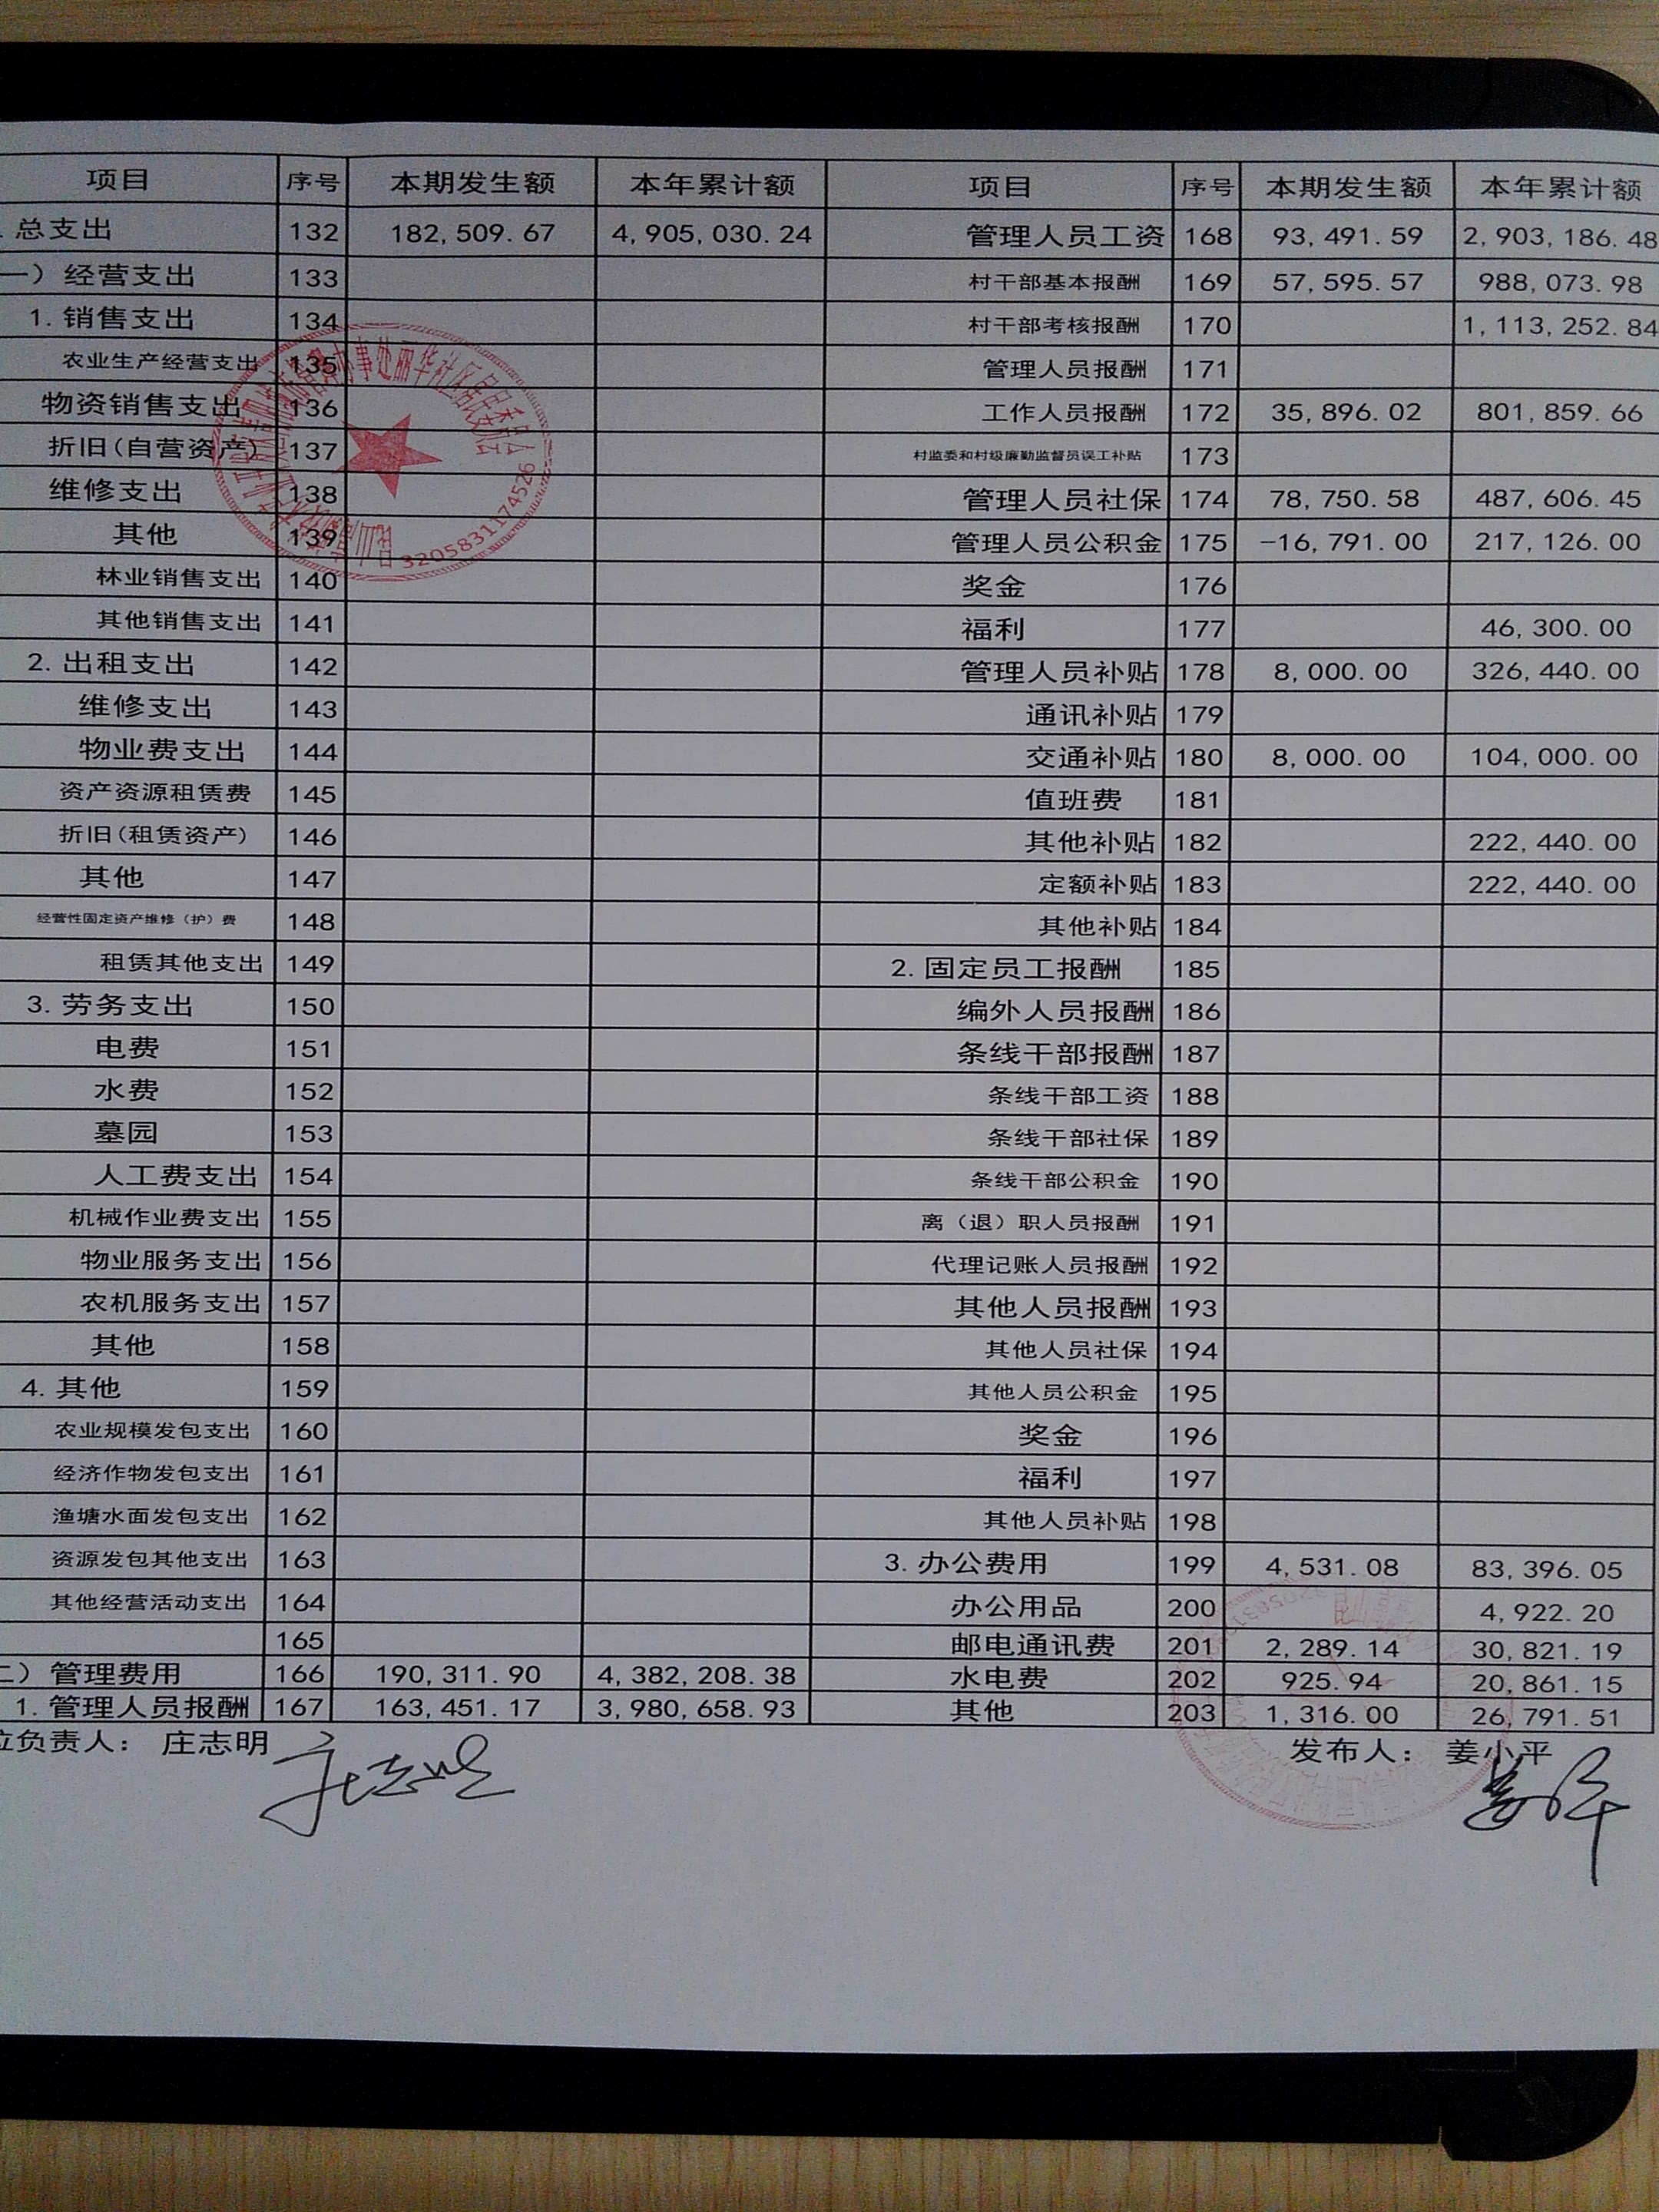 项目 序号 本期发生额 本年累计额 项目 序号 本期发生额 本年累计额
总支出 132 182,509.67 4,905,030.24 管理人员工资 168 93,491.59 2,903,186.48
一）经营支出 133 村干部基本报酬 169 57,595.57 988,073.98
1.销售支出 134 村干部考核报酬 170 1,113,252.84
农业生产经营支出 135 管理人员报酬 171
物资销售支出 136 工作人员报酬 172 35,896.02 801,859.66
折旧(自营资产) 137 村监委和村级廉勤监督员误工补贴 173
维修支出 138 管理人员社保 174 78,750.58 487,606.45
其他 139 管理人员公积金 175 -16,791.00 217,126.00
林业销售支出 140 奖金 176
其他销售支出 141 福利 177 46,300.00
2.出租支出 142 管理人员补贴 178 8,000.00 326,440.00
维修支出 143 通讯补贴 179
物业费支出 144 交通补贴 180 8,000.00 104,000.00
资产资源租赁费 145 值班费 181
折旧(租赁资产) 146 其他补贴 182 222,440.00
其他 147 定额补贴 183 222,440.00
经营性固定资产维修（护）费 148 其他补贴 184
租赁其他支出 149 2.固定员工报酬 185
3.劳务支出 150 编外人员报酬 186
电费 151 条线干部报酬 187
水费 152 条线干部工资 188
墓园 153 条线干部社保 189
人工费支出 154 条线干部公积金 190
机械作业费支出 155 离（退）职人员报酬 191
物业服务支出 156 代理记账人员报酬 192
农机服务支出 157 其他人员报酬 193
其他 158 其他人员社保 194
4.其他 159 其他人员公积金 195
农业规模发包支出 160 奖金 196
经济作物发包支出 161 福利 197
渔塘水面发包支出 162 其他人员补贴 198
资源发包其他支出 163 3.办公费用 199 4,531.08 83,396.05
其他经营活动支出 164 办公用品 200 4,922.20
165 邮电通讯费 201 2,289.14 30,821.19
二）管理费用 166 190,311.90 4,382,208.38 水电费 202 925.94 20,861.15
1.管理人员报酬 167 163,451.17 3,980,658.93 其他 203 1,316.00 26,791.51
位负责人： 庄志明 发布人： 姜小平
庄志明 姜小平
3205831174526